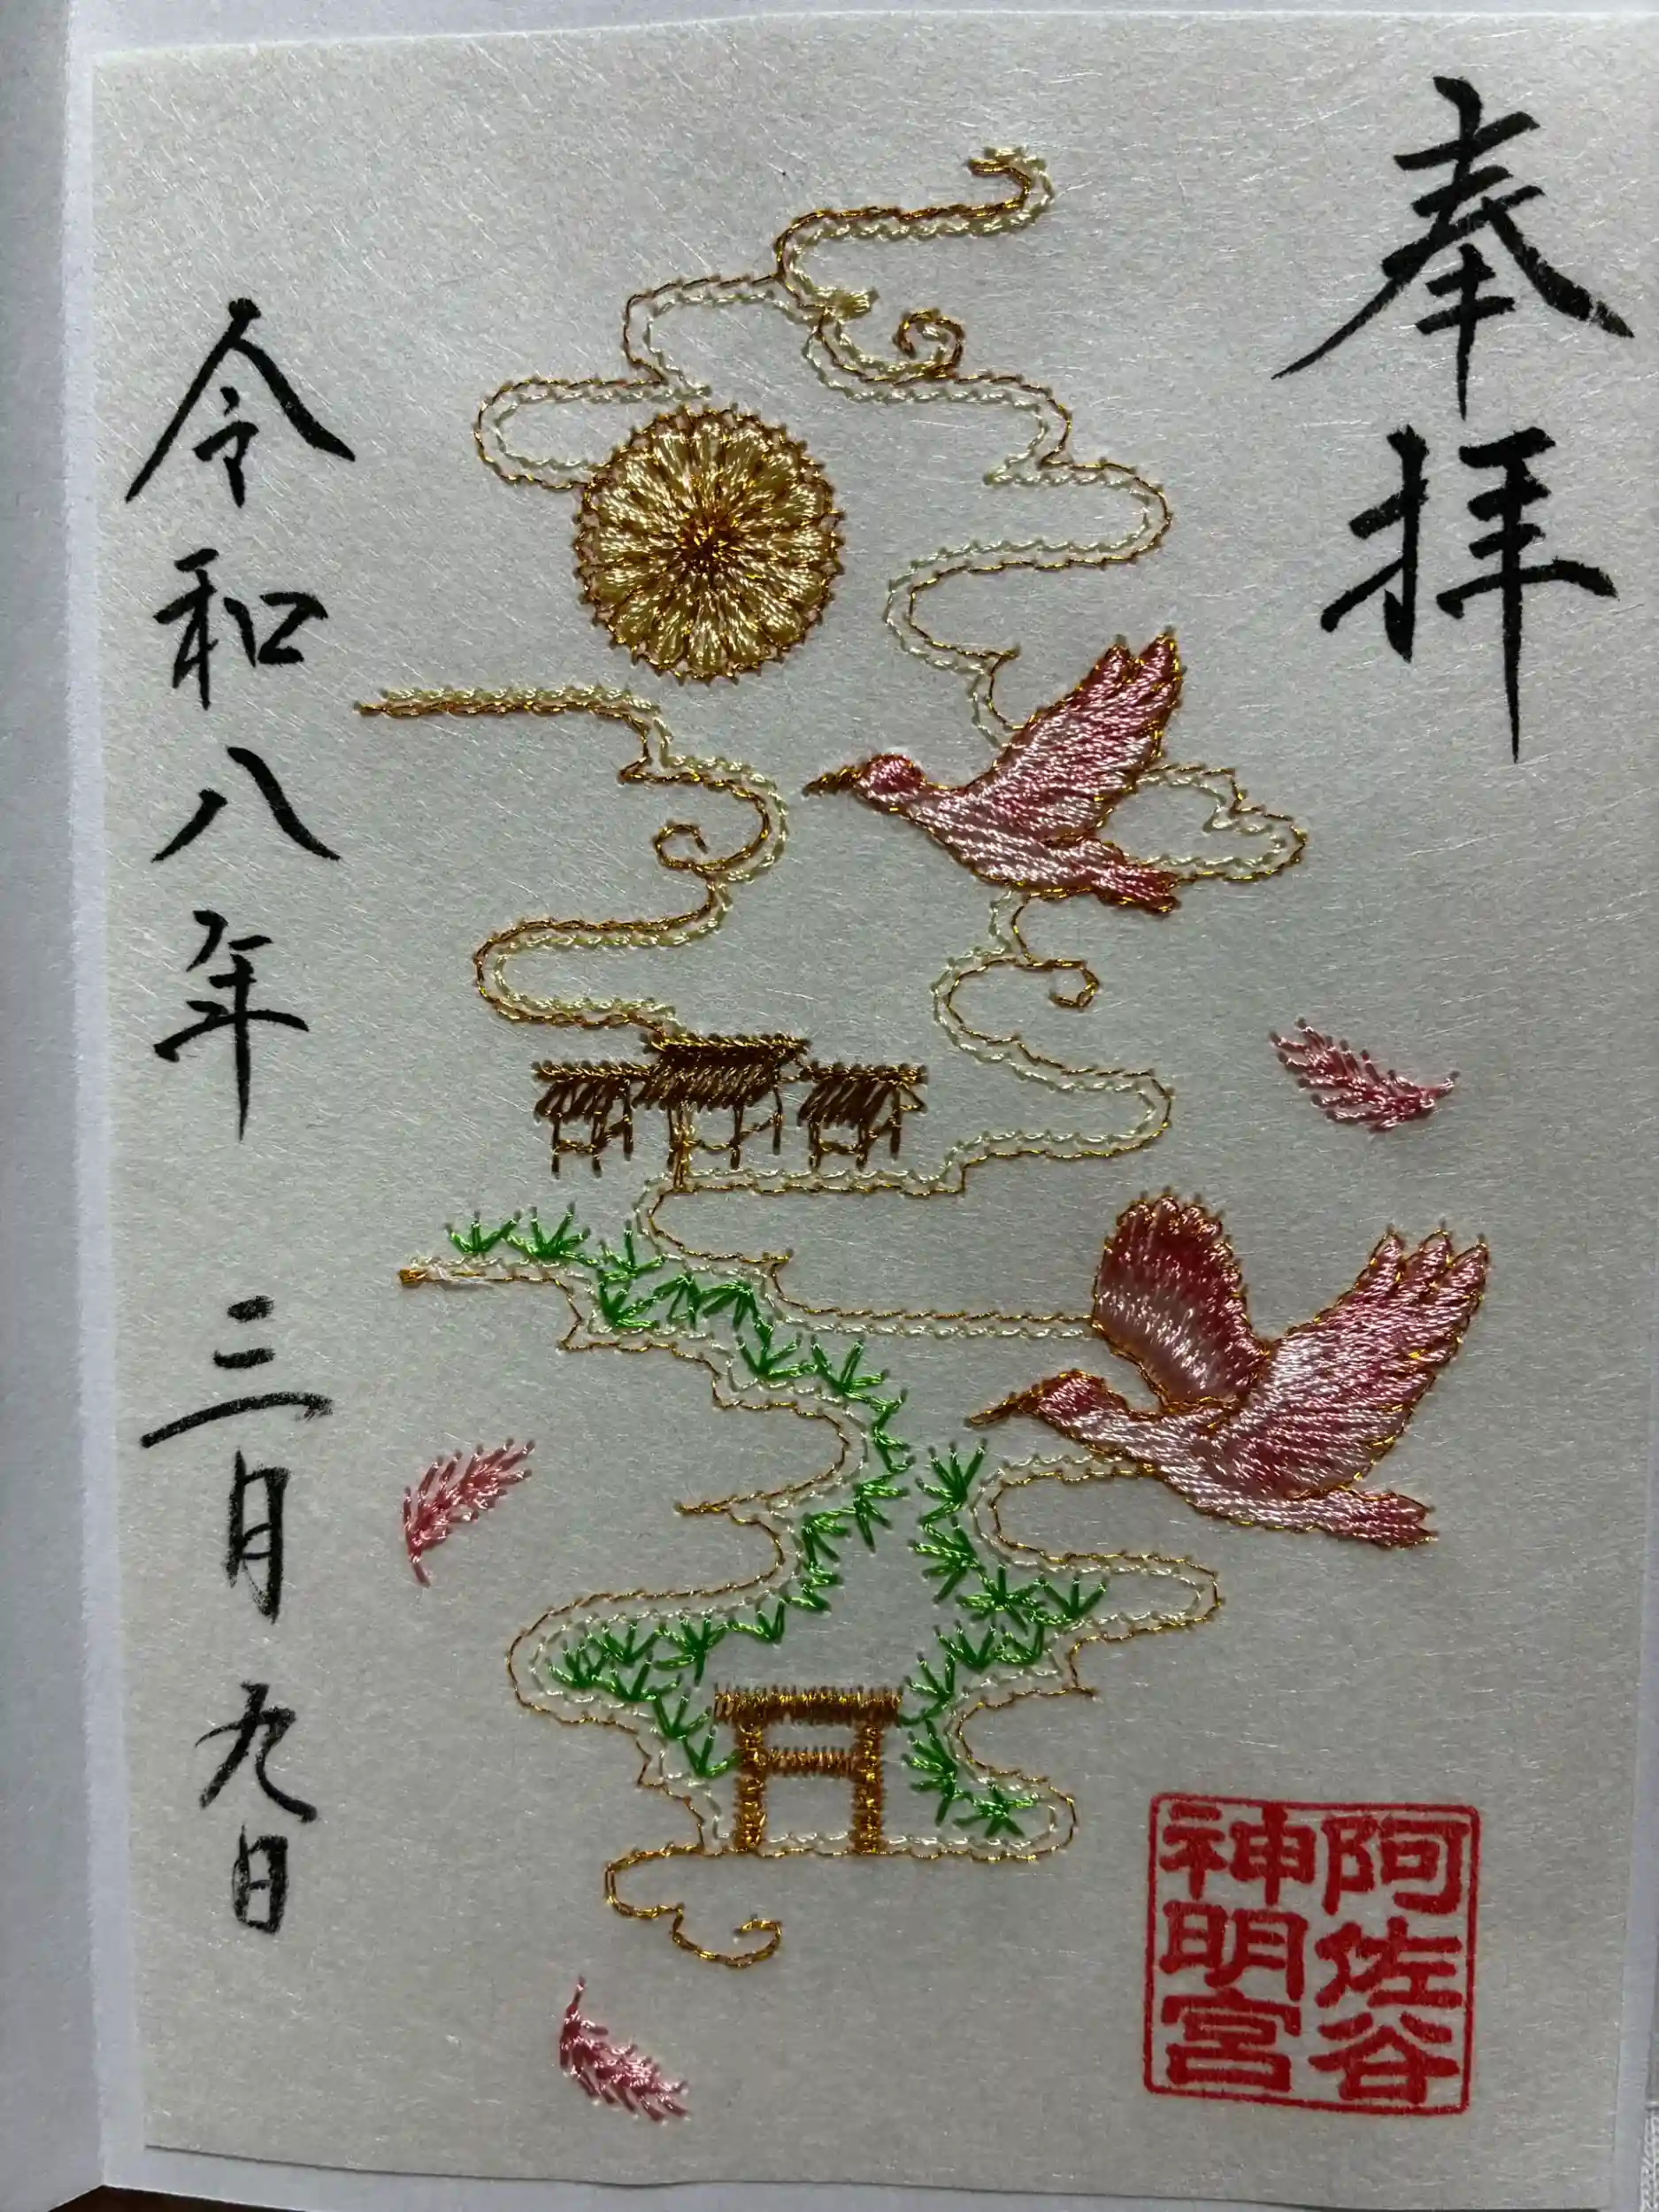 奉拝
阿佐谷
神明宮
令和八年 三月九日